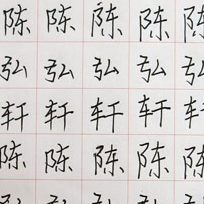 陈陈陈陈陈
弘弘弘弘弘
轩轩轩轩轩
陈陈陈陈陈
弘弘弘弘弘